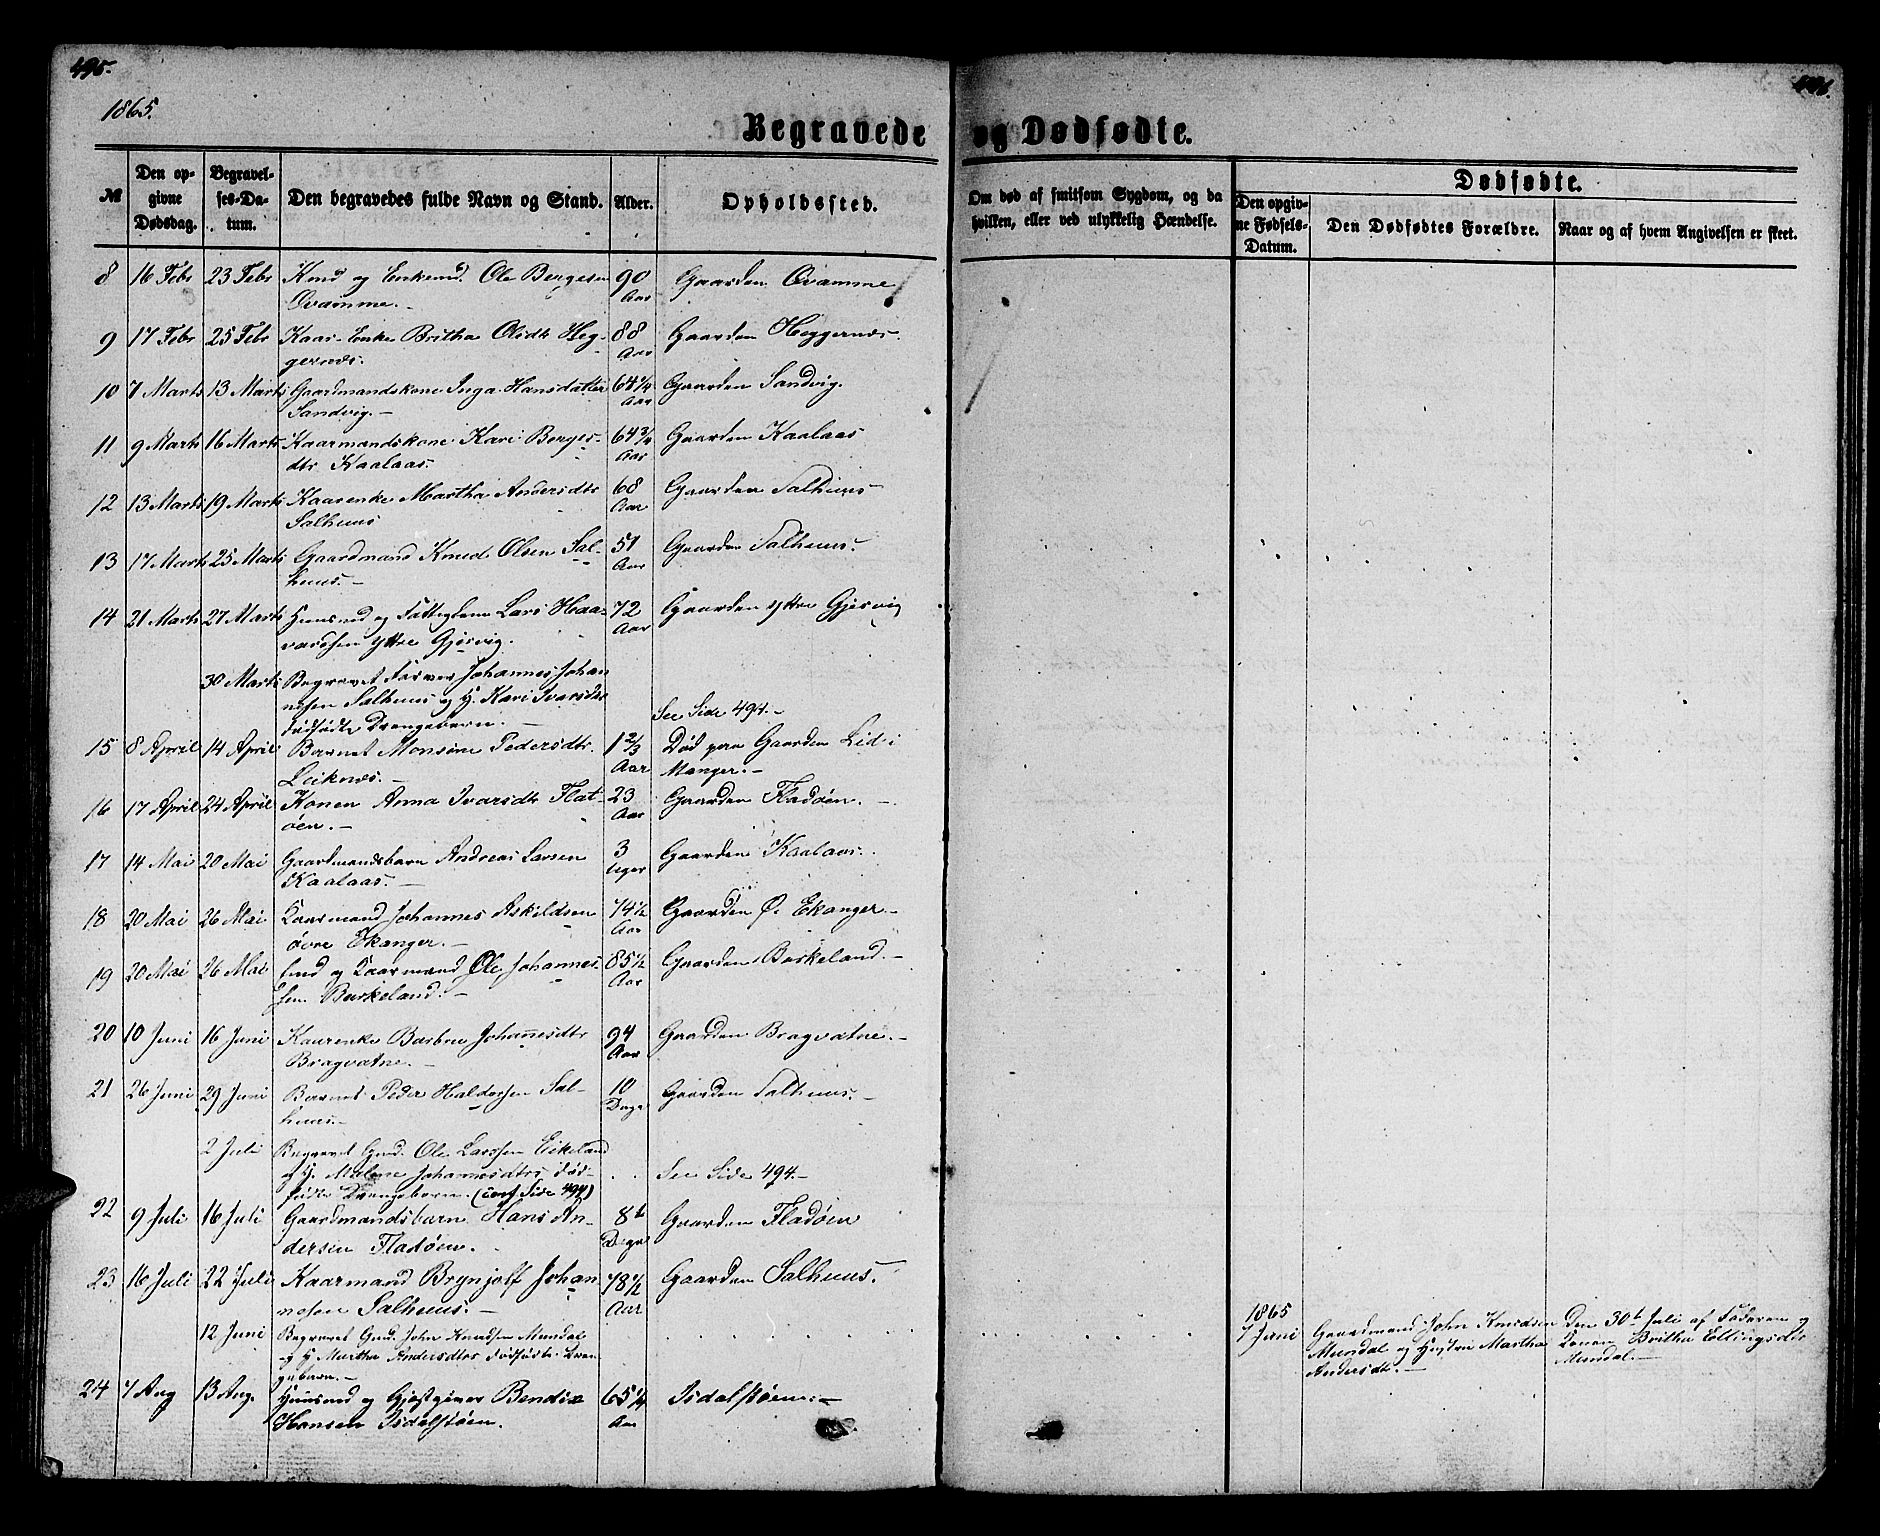 495.
1865.
Begravede
No
Den op-
givne
Dødsdag.
Begravel-
ses-Da-
tum.
Den begravedes fulde Navn og Stand.
Alder.
Opholdssted.
8 16 Febr 23 Febr Knud og Enkemd. Ole Bergesen 90 Gaarden Qvamme
Qvamme.- Aar
9 17 Febr 25 Febr Kaar-Enke Britha Olidtr Heg- 88 Gaarden Heggernæs.
gernæs. Aar
10 7 Marts 13 Marts Gaardmandskone Inga Hansdatter 64 1/4 Gaarden Sandvig.
Sandvig.- Aar
11 9 Marts 16 Marts Kaarmandskone Kari Berges- 64 3/4 Gaarden Kaalaas
dtr Kaalaas. Aar
12 13 Marts 19 Marts Kaarenke Martha Andersdtr 68 Gaarden Salhuus
Salhuus Aar
13 17 Marts 25 Marts Gaardmand Knud Olsen Sal- 51 Gaarden Salhuus.
huus.- Aar
14 21 Marts 27 Marts Huusmd og Fattiglem Lars Haa- 72 Gaarden ytre Gjervig
vardsen ytre Gjervig. Aar
30 Marts Begravet Farver Johannes Johan
nesen Salhuus og H. Kari Ivarsdtr
dødfødte Drengebarn.- See Side 494.-
15 8 April 14 April Barnet Monsine Pedersdtr. 1 2/3 Død paa Gaarden Lid i
Leiknes.- Aar Manger.-
16 17 April 24 April Konen Anna Ivarsdtr Flat- 23 Gaarden Fladøen.-
øen.- Aar
17 14 Mai 20 Mai Gaardmandsbarn Andreas Larsen 3 Gaarden Kaalaas.
Kaalaas.- Uger
18 20 Mai 26 Mai Kaarmand Johannes Askildsen 74 1/2 Gaarden Ø. Ekanger.-
øvre Ekanger.- Aar
19 20 Mai 26 Mai Knd og Kaarmand Ole Johannes- 85 1/2 Gaarden Birkeland.-
sen Birkeland.- Aar
20 10 Juni 16 Juni Kaarenke Barbra Johannesdtr 94 Gaarden Bragvatne.-
Bragvatne.- Aar
21 26 Juni 29 Juni Barnet Peder Haldorsen Sal- 10 Gaarden Salhuus.-
huus.- Dage
2 Juli Begravet Gmd. Ole Larssen Eikeland
og H. Malene Johannesdtrs død-
fødte Drengebarn. (conf Side 494) See Side 494.-
22 9 Juli 16 Juli Gaardmandsbarn Hans An- 8 Gaarden Fladøen
dersen Fladøen. Dage
23 16 Juli 22 Juli Kaarmand Brynjolf Johan 78 1/2 Gaarden Salhuus.
nesen Salhuus.- Aar
12 Juni Begravet Gmd. John Knudsen Mundal
og H Martha Andersdtrs dødfødte Dren
gebarn.-
24 7 Aug 13 Aug. Huusmd og Gjestgiver Bendix 65 1/4 Isdalstøen.-
Hansen Isdalstøen. Aar
496.
og Dødfødte.
Om død af smitsom Sygdom, og da
hvilken, eller ved ulykkelig Hændelse.
Dødfødte.
Den opgiv-
ne Fødsels-
Datum.
Den Dødfødtes Forældre.
Naar og af hvem Angivelsen er skeet.
1865
7 Juni Gaardmand John Knudsen Den 30t Juli af Faderen og
Mundal og Hustru Martha Konen Britha Ellingsdtr
Andersdtr.- Mundal.-